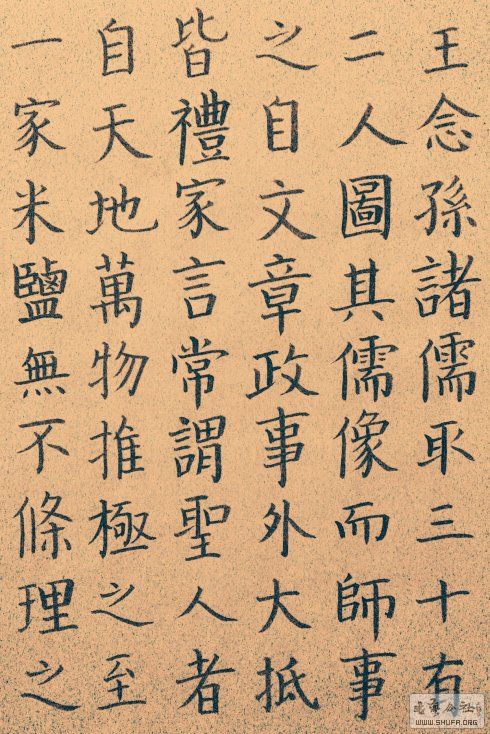 王念孫諸儒取三十有
二人圖其儒像而師事
之自文章政事外大抵
皆禮家言常謂聖人者
自天地萬物推極之至
一家米鹽無不條理之
WWW.SHUFA.ORG